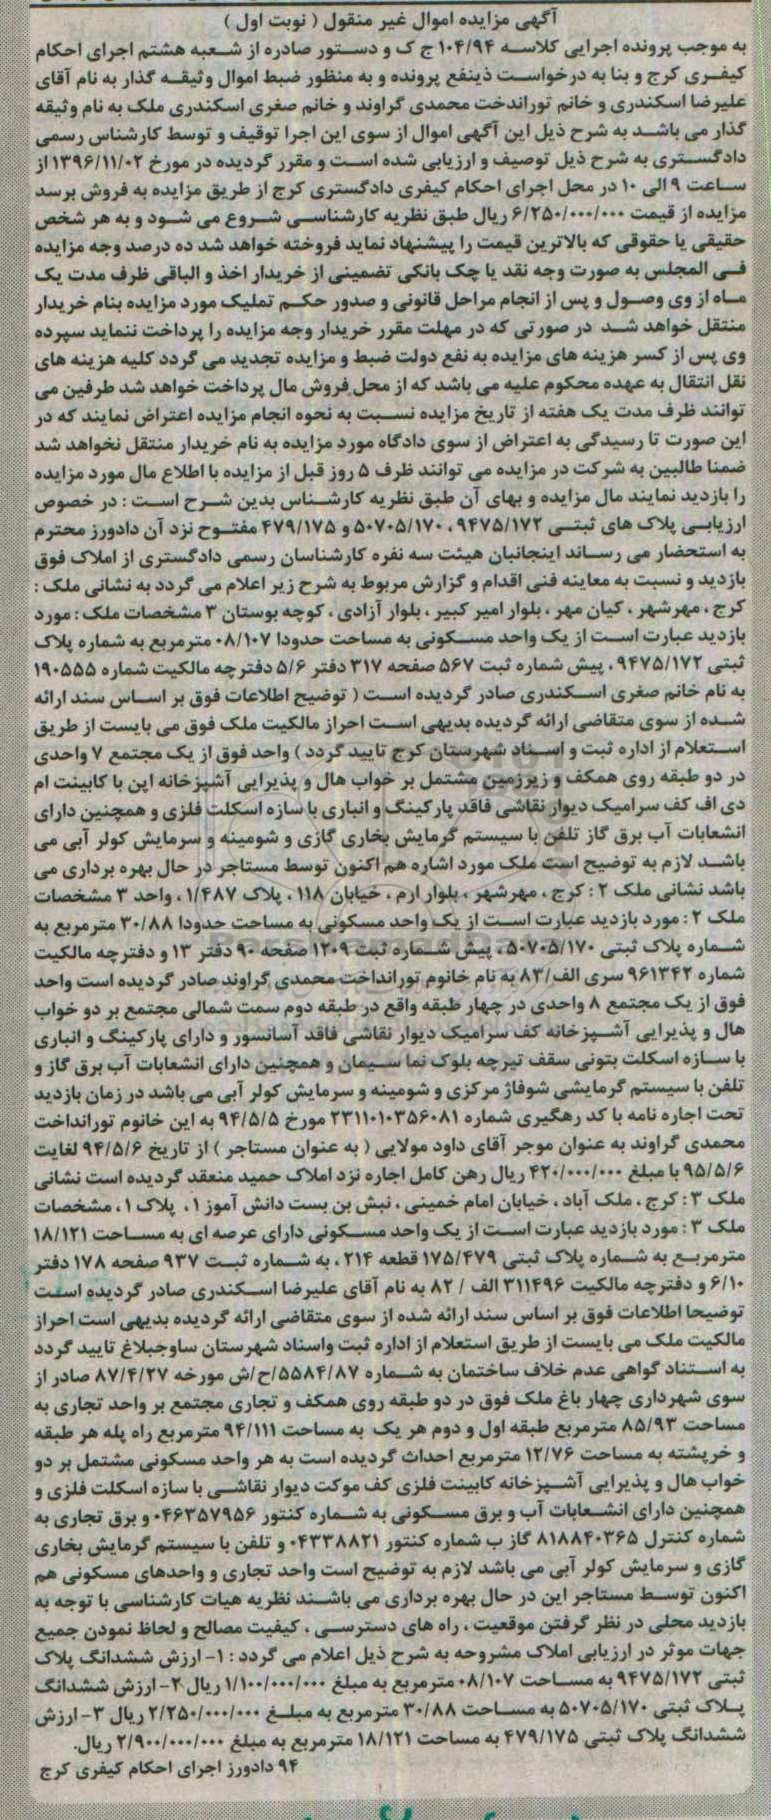 آگهی مزایده اموال غیر منقول ( نوبت اول )
به موجب پرونده اجرایی کلاسه ۱۰۴/۹۴ ج ک و دستور صادره از شعبه هشتم اجرای احکام
کیفری کرج و بنا به درخواست ذینفع پرونده و به منظور ضبط اموال وثیقه گذار به نام آقای
علیرضا اسکندری و خانم توراندخت محمدی گراوند و خانم صغری اسکندری ملک به نام وثیقه
گذار می باشد به شرح ذیل این آگهی اموال از سوی این اجرا توقیف و توسط کارشناس رسمی
دادگستری به شرح ذیل توصیف و ارزیابی شده است و مقرر گردیده در مورخ ۱۳۹۶/۱۱/۰۲ از
ساعت ۹ الی ۱۰ در محل اجرای احکام کیفری دادگستری کرج از طریق مزایده به فروش برسد
مزایده از قیمت ۶/۲۵۰/۰۰۰/۰۰۰ ریال طبق نظریه کارشناسی شروع می شود و به هر شخص
حقیقی یا حقوقی که بالاترین قیمت را پیشنهاد نماید فروخته خواهد شد ده درصد وجه مزایده
فی المجلس به صورت وجه نقد یا چک بانکی تضمینی از خریدار اخذ و الباقی ظرف مدت یک
ماه از وی وصول و پس از انجام مراحل قانونی و صدور حکم تملیک مورد مزایده بنام خریدار
منتقل خواهد شد در صورتی که در مهلت مقرر خریدار وجه مزایده را پرداخت ننماید سپرده
وی پس از کسر هزینه های مزایده به نفع دولت ضبط و مزایده تجدید می گردد کلیه هزینه های
نقل انتقال به عهده محکوم علیه می باشد که از محل فروش مال پرداخت خواهد شد طرفین می
توانند ظرف مدت یک هفته از تاریخ مزایده نسبت به نحوه انجام مزایده اعتراض نمایند که در
این صورت تا رسیدگی به اعتراض از سوی دادگاه مورد مزایده به نام خریدار منتقل نخواهد شد
ضمنا طالبین به شرکت در مزایده می توانند ظرف ۵ روز قبل از مزایده با اطلاع مال مورد مزایده
را بازدید نمایند مال مزایده و بهای آن طبق نظریه کارشناس بدین شرح است : در خصوص
ارزیابی پلاک های ثبتی ۹۴۷۵/۱۷۲ ، ۵۰۷۰۵/۱۷۰ و ۴۷۹/۱۷۵ مفتوح نزد آن دادورز محترم
به استحضار می رساند اینجانبان هیئت سه نفره کارشناسان رسمی دادگستری از املاک فوق
بازدید و نسبت به معاینه فنی اقدام و گزارش مربوط به شرح زیر اعلام می گردد به نشانی ملک :
کرج ، مهرشهر ، کیان مهر ، بلوار امیر کبیر ، بلوار آزادی ، کوچه بوستان ۳ مشخصات ملک : مورد
بازدید عبارت است از یک واحد مسکونی به مساحت حدودا ۰۸/۱۰۷ مترمربع به شماره پلاک
ثبتی ۹۴۷۵/۱۷۲ ، پیش شماره ثبت ۵۶۷ صفحه ۳۱۷ دفتر ۵/۶ دفترچه مالکیت شماره ۱۹۰۵۵۵
به نام خانم صغری اسکندری صادر گردیده است ( توضیح اطلاعات فوق بر اساس سند ارائه
شده از سوی متقاضی ارائه گردیده بدیهی است احراز مالکیت ملک فوق می بایست از طریق
استعلام از اداره ثبت و اسناد شهرستان کرج تایید گردد ) واحد فوق از یک مجتمع ۷ واحدی
در دو طبقه روی همکف و زیرزمین مشتمل بر خواب هال و پذیرایی آشپزخانه اپن با کابینت ام
دی اف کف سرامیک دیوار نقاشی فاقد پارکینگ و انباری با سازه اسکلت فلزی و همچنین دارای
انشعابات آب برق گاز تلفن با سیستم گرمایش بخاری گازی و شومینه و سرمایش کولر آبی می
باشد لازم به توضیح است ملک مورد اشاره هم اکنون توسط مستاجر در حال بهره برداری می
باشد نشانی ملک ۲ : کرج ، مهرشهر ، بلوار ارم ، خیابان ۱۱۸ ، پلاک ۱/۴۸۷ ، واحد ۳ مشخصات
ملک ۲ : مورد بازدید عبارت است از یک واحد مسکونی به مساحت حدودا ۳۰/۸۸ مترمربع به
شماره پلاک ثبتی ۵۰۷۰۵/۱۷۰ ، پیش شماره ثبت ۱۲۰۹ صفحه ۹۰ دفتر ۱۳ و دفترچه مالکیت
شماره ۹۶۱۳۴۲ سری الف/۸۳ به نام خانوم تورانداخت محمدی گراوند صادر گردیده است واحد
فوق از یک مجتمع ۸ واحدی در چهار طبقه واقع در طبقه دوم سمت شمالی مجتمع بر دو خواب
هال و پذیرایی آشپزخانه کف سرامیک دیوار نقاشی فاقد آسانسور و دارای پارکینگ و انباری
با سازه اسکلت بتونی سقف تیرچه بلوک نما سیمان و همچنین دارای انشعابات آب برق گاز و
تلفن با سیستم گرمایشی شوفاژ مرکزی و شومینه و سرمایش کولر آبی می باشد در زمان بازدید
تحت اجاره نامه با کد رهگیری شماره ۲۳۱۱۰۱۰۳۵۶۰۸۱ مورخ ۹۴/۵/۵ به این خانوم تورانداخت
محمدی گراوند به عنوان موجر آقای داود مولایی ( به عنوان مستاجر ) از تاریخ ۹۴/۵/۶ لغایت
۹۵/۵/۶ با مبلغ ۴۲۰/۰۰۰/۰۰۰ ریال رهن کامل اجاره نزد املاک حمید منعقد گردیده است نشانی
ملک ۳ : کرج ، ملک آباد ، خیابان امام خمینی ، نبش بن بست دانش آموز ۱ ، پلاک ۱ ، مشخصات
ملک ۳ : مورد بازدید عبارت است از یک واحد مسکونی دارای عرصه ای به مساحت ۱۸/۱۲۱
مترمربع به شماره پلاک ثبتی ۱۷۵/۴۷۹ قطعه ۲۱۴ ، به شماره ثبت ۹۳۷ صفحه ۱۷۸ دفتر
۶/۱۰ و دفترچه مالکیت ۳۱۱۴۹۶ الف / ۸۲ به نام آقای علیرضا اسکندری صادر گردیده است
توضیحا اطلاعات فوق بر اساس سند ارائه شده از سوی متقاضی ارائه گردیده بدیهی است احراز
مالکیت ملک می بایست از طریق استعلام از اداره ثبت واسناد شهرستان ساوجبلاغ تایید گردد
به استناد گواهی عدم خلاف ساختمان به شماره ۵۵۸۴/۸۷/ح/ش مورخه ۸۷/۴/۲۷ صادر از
سوی شهرداری چهار باغ ملک فوق در دو طبقه روی همکف و تجاری مجتمع بر واحد تجاری به
مساحت ۸۵/۹۳ مترمربع طبقه اول و دوم هر یک به مساحت ۹۴/۱۱۱ مترمربع راه پله هر طبقه
و خرپشته به مساحت ۱۲/۷۶ مترمربع احداث گردیده است به هر واحد مسکونی مشتمل بر دو
خواب هال و پذیرایی آشپزخانه کابینت فلزی کف موکت دیوار نقاشی با سازه اسکلت فلزی و
همچنین دارای انشعابات آب و برق مسکونی به شماره کنتور ۰۴۶۳۵۷۹۵۶ و برق تجاری به
شماره کنترل ۸۱۸۸۴۰۳۶۵ گاز ب شماره کنتور ۰۴۳۳۸۸۲۱ و تلفن با سیستم گرمایش بخاری
گازی و سرمایش کولر آبی می باشد لازم به توضیح است واحد تجاری و واحدهای مسکونی هم
اکنون توسط مستاجر این در حال بهره برداری می باشند نظریه هیات کارشناسی با توجه به
بازدید محلی در نظر گرفتن موقعیت ، راه های دسترسی ، کیفیت مصالح و لحاظ نمودن جمیع
جهات موثر در ارزیابی املاک مشروحه به شرح ذیل اعلام می گردد : ۱- ارزش ششدانگ پلاک
ثبتی ۹۴۷۵/۱۷۲ به مساحت ۰۸/۱۰۷ مترمربع به مبلغ ۱/۱۰۰/۰۰۰/۰۰۰ ریال ۲- ارزش ششدانگ
پلاک ثبتی ۵۰۷۰۵/۱۷۰ به مساحت ۳۰/۸۸ مترمربع به مبلغ ۲/۲۵۰/۰۰۰/۰۰۰ ریال ۳- ارزش
ششدانگ پلاک ثبتی ۴۷۹/۱۷۵ به مساحت ۱۸/۱۲۱ مترمربع به مبلغ ۲/۹۰۰/۰۰۰/۰۰۰ ریال.
۹۴ دادورز اجرای احکام کیفری کرج